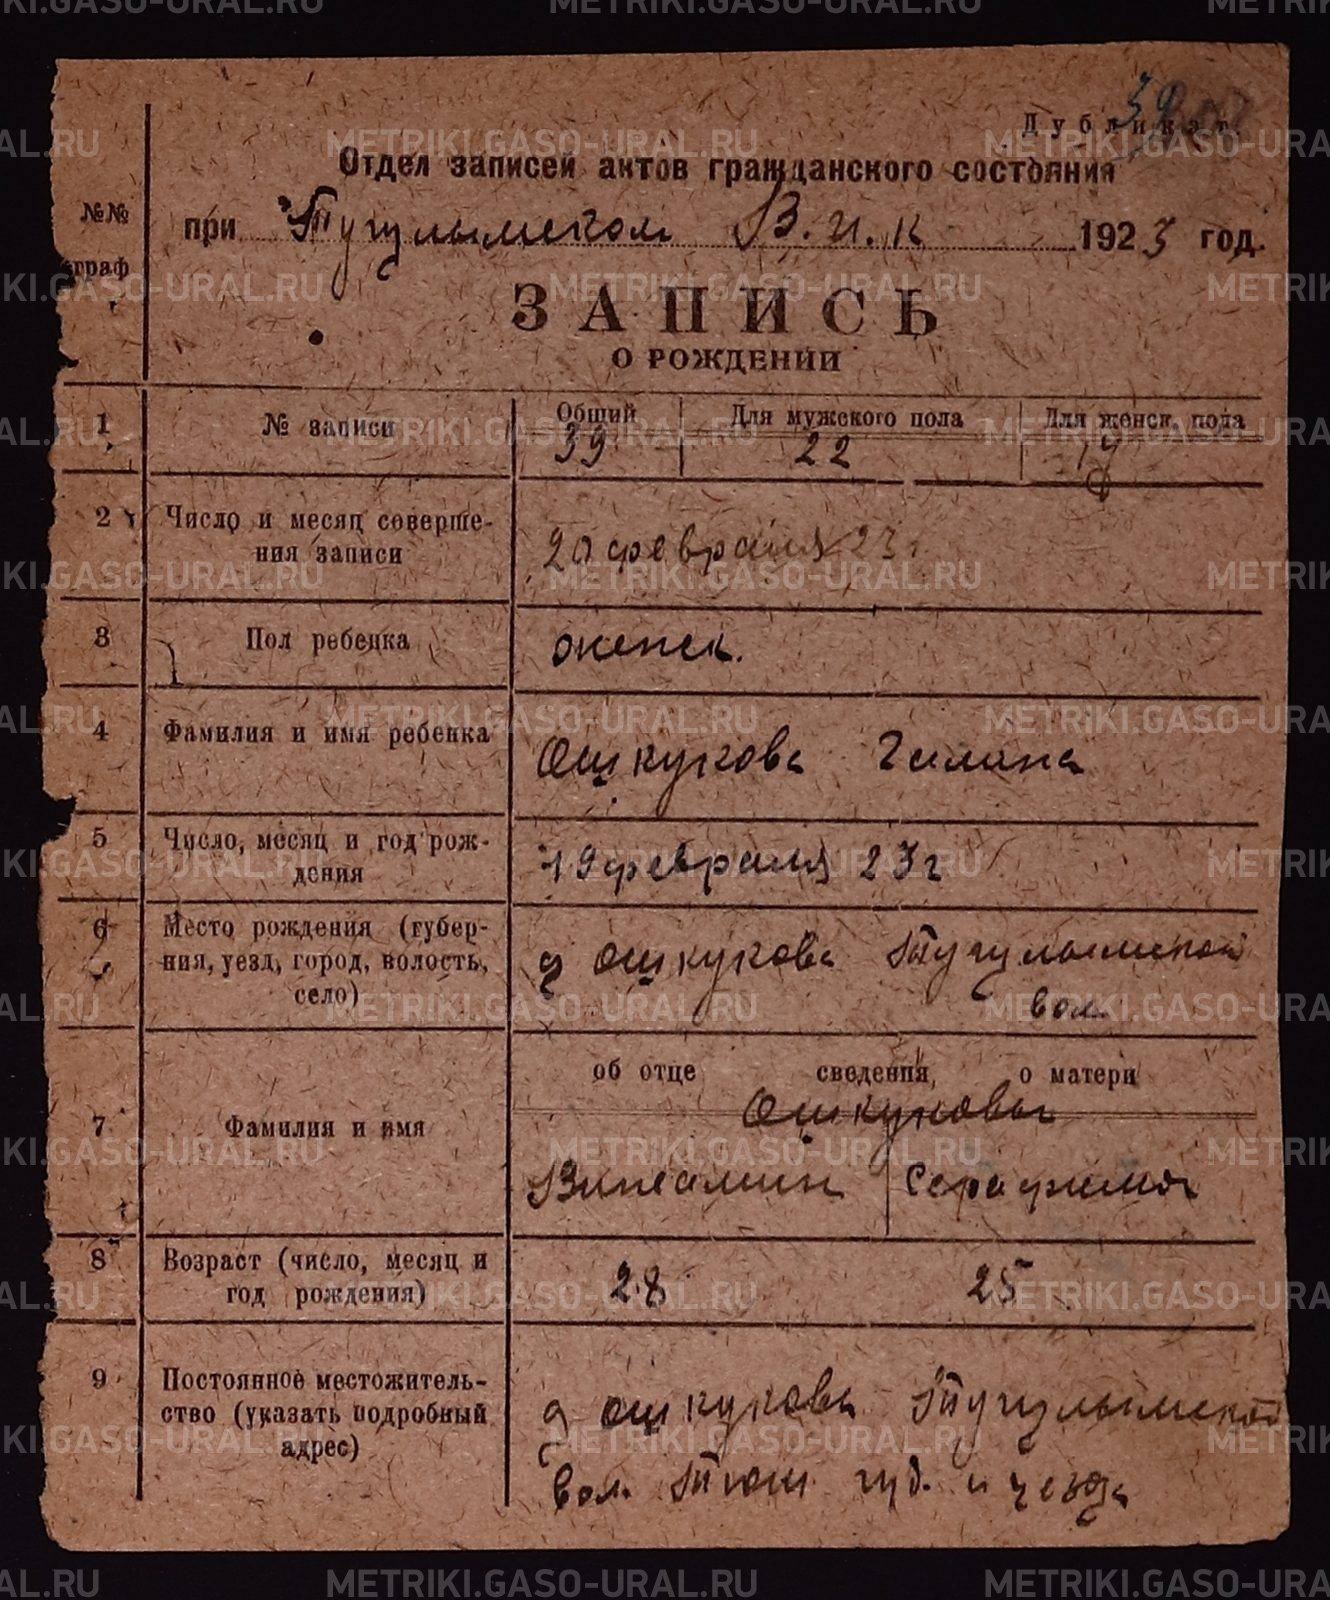 Дубликат.
39
Отдел записей актов гражданского состояния
при Тугулымском В.И.К 1923 год.
№№ граф
ЗАПИСЬ
О РОЖДЕНИИ
1 № записи Общий Для мужского пола Для женск. пола
39 22
2 Число и месяц соверше-
ния записи
20 февраля 23 г
3 Пол ребенка женск.
4 Фамилия и имя ребенка Ошкукова Галина
5 Число, месяц и год рож-
дения
19 февраля 23 г
6 Место рождения (губер-
ния, уезд, город, волость,
село)
д Ошкукова Тугулымской
вол.
об отце сведения о матери
7 Фамилия и имя Ошкуковы
Вениамин Серафима
8 Возраст (число, месяц и
год рождения)
28 25
9 Постоянное местожитель-
ство (указать подробный
адрес)
д Ошкукова Тугулымской
вол. Тюм губ. и уезда
METRIKI.GASO-URAL.RU